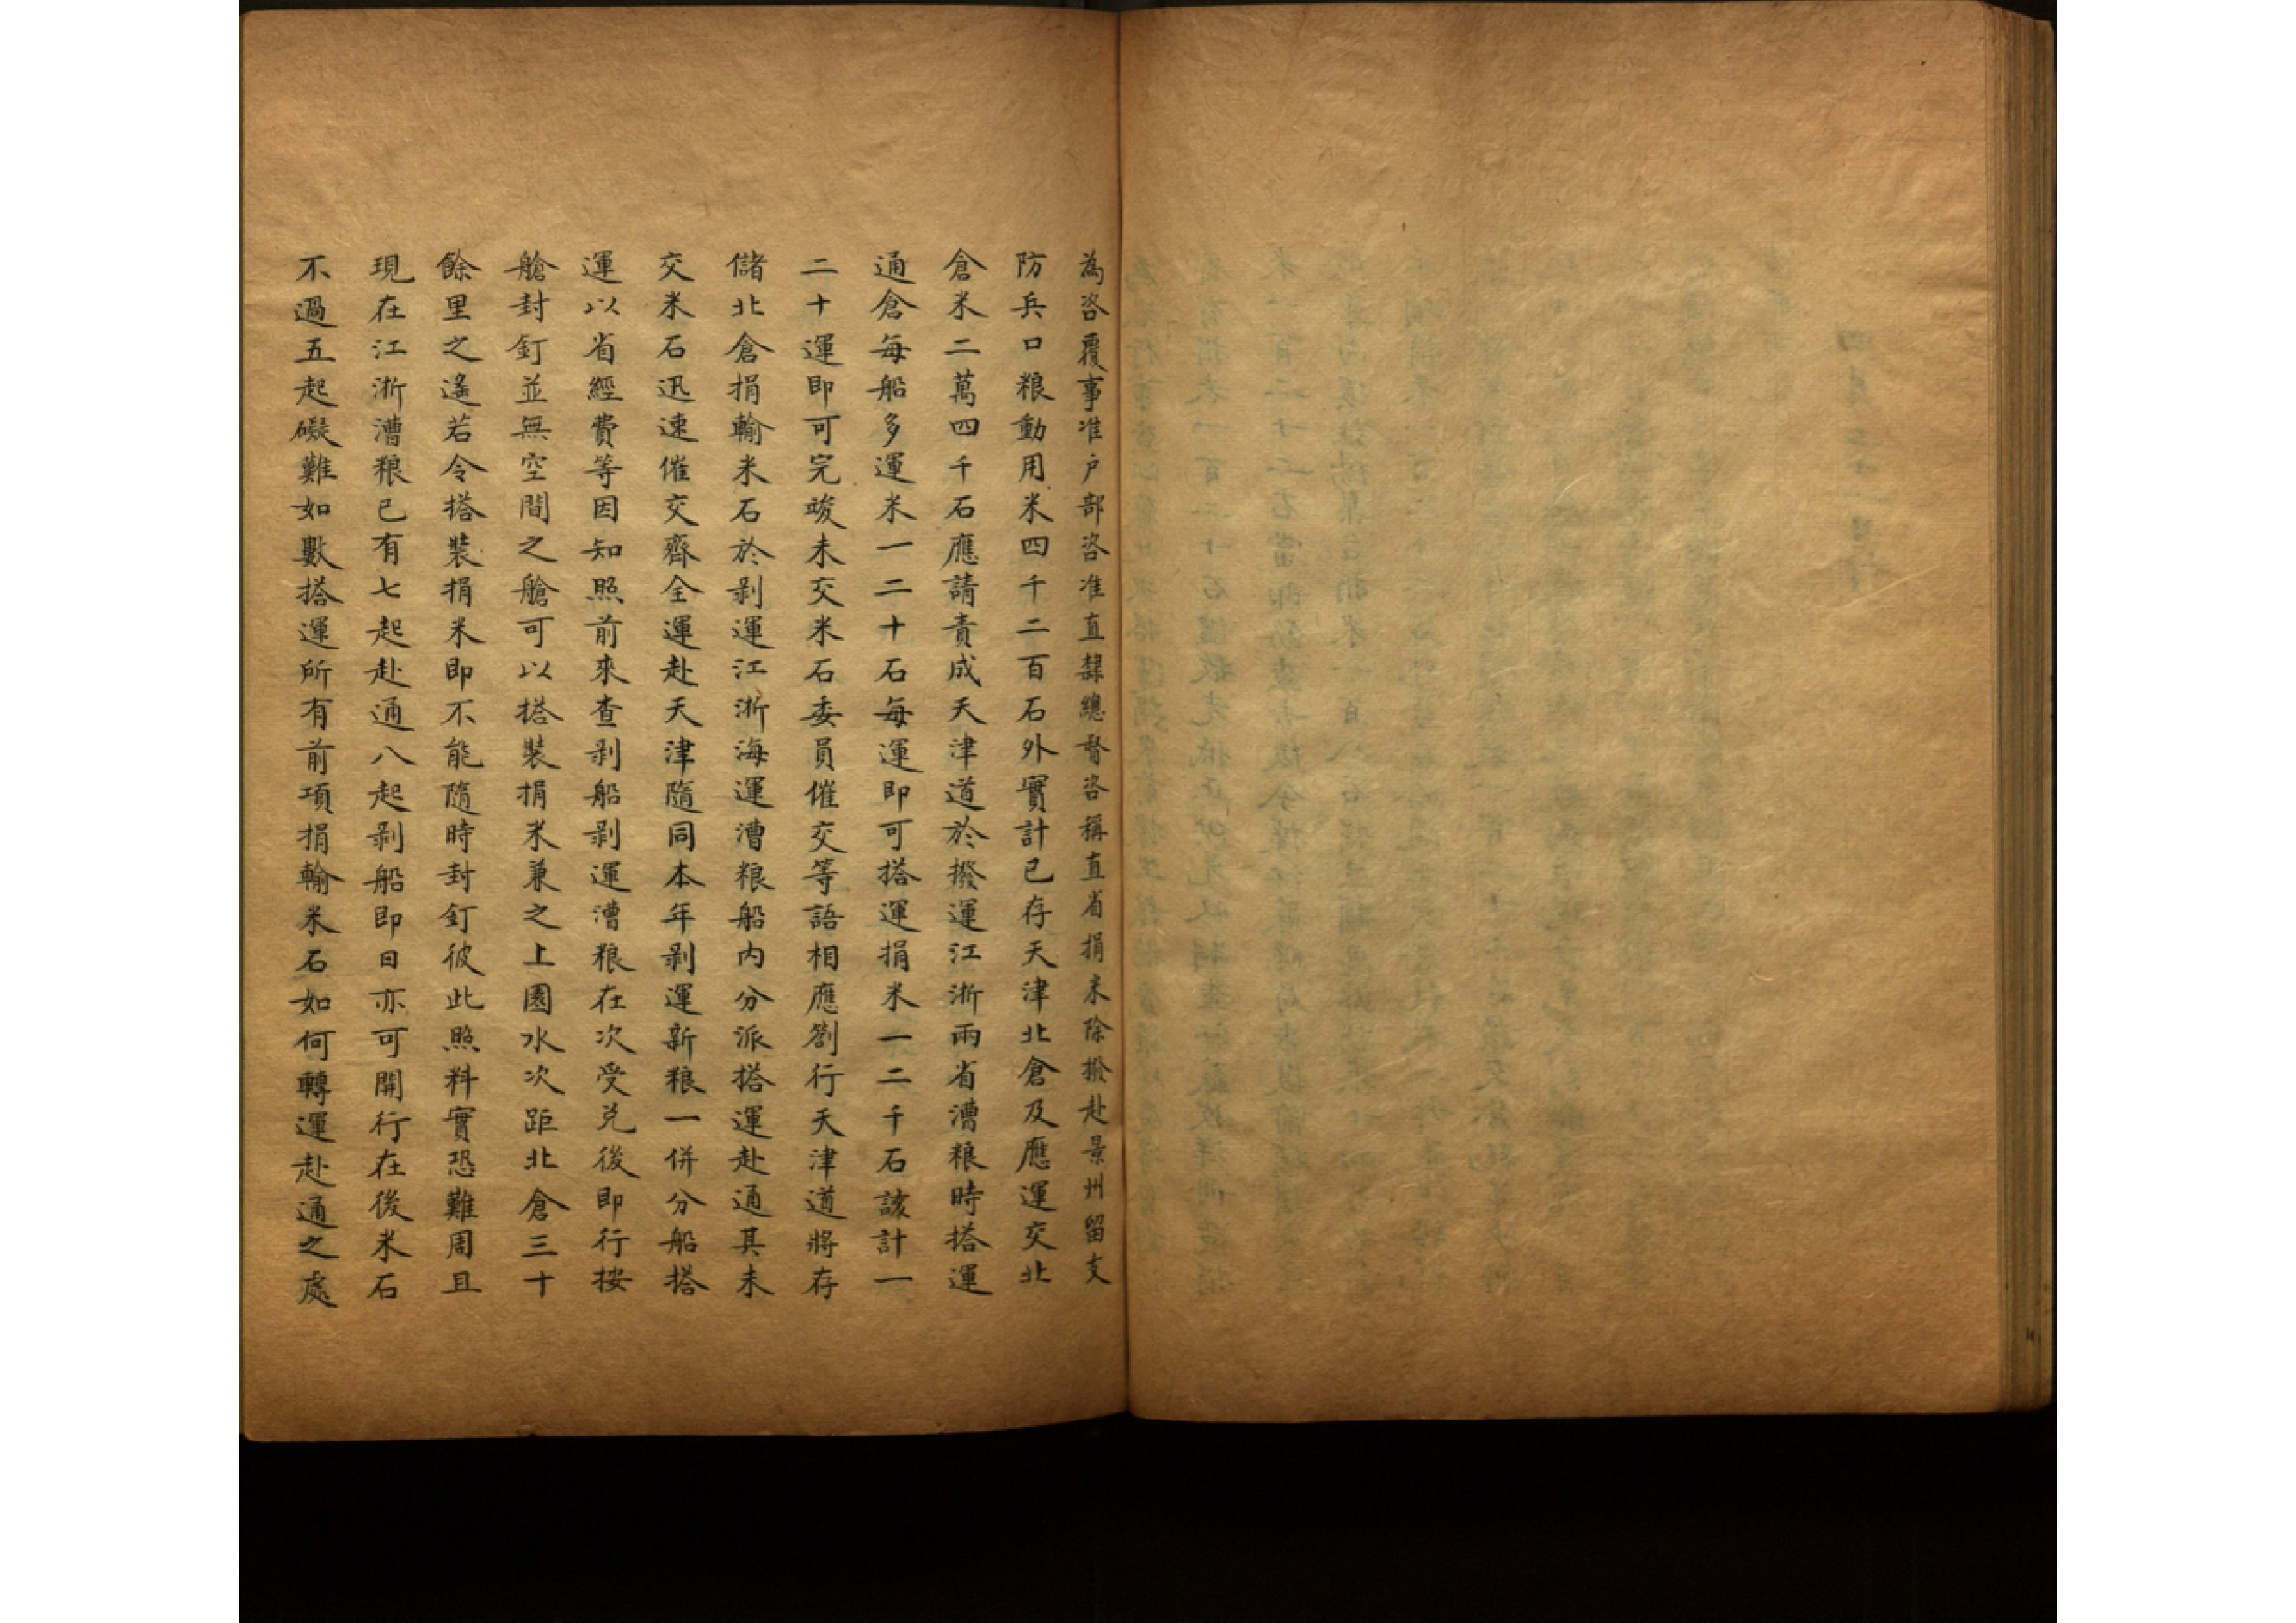 為咨覆事准户部咨准直隸總督咨稱直省捐米除撥赴景州留支
防兵口粮動用米四千二百石外實計已存天津北倉及應運交北
倉米二萬四千石應請責成天津道於撥運江浙兩省漕粮時搭運
通倉每船多運米一二十石每運即可搭運捐米一二千石該計一
二十運即可完竣未交米石委員催交等語相應劄行天津道將存
儲北倉捐輸米石於剥運江浙海運漕粮船内分派搭運赴通其未
交米石迅速催交齊全運赴天津隨同本年剥運新粮一併分船搭
運以省經費等因知照前來查剥船剥運漕粮在次受兑後即行按
艙封釘並無空間之艙可以搭裝捐米兼之上園水次距北倉三十
餘里之遙若令搭裝捐米即不能隨時封釘彼此照料實恐難周且
現在江浙漕粮已有七起赴通八起剥船即日亦可開行在後米石
不過五起礙難如數搭運所有前項捐輸米石如何轉運赴通之處